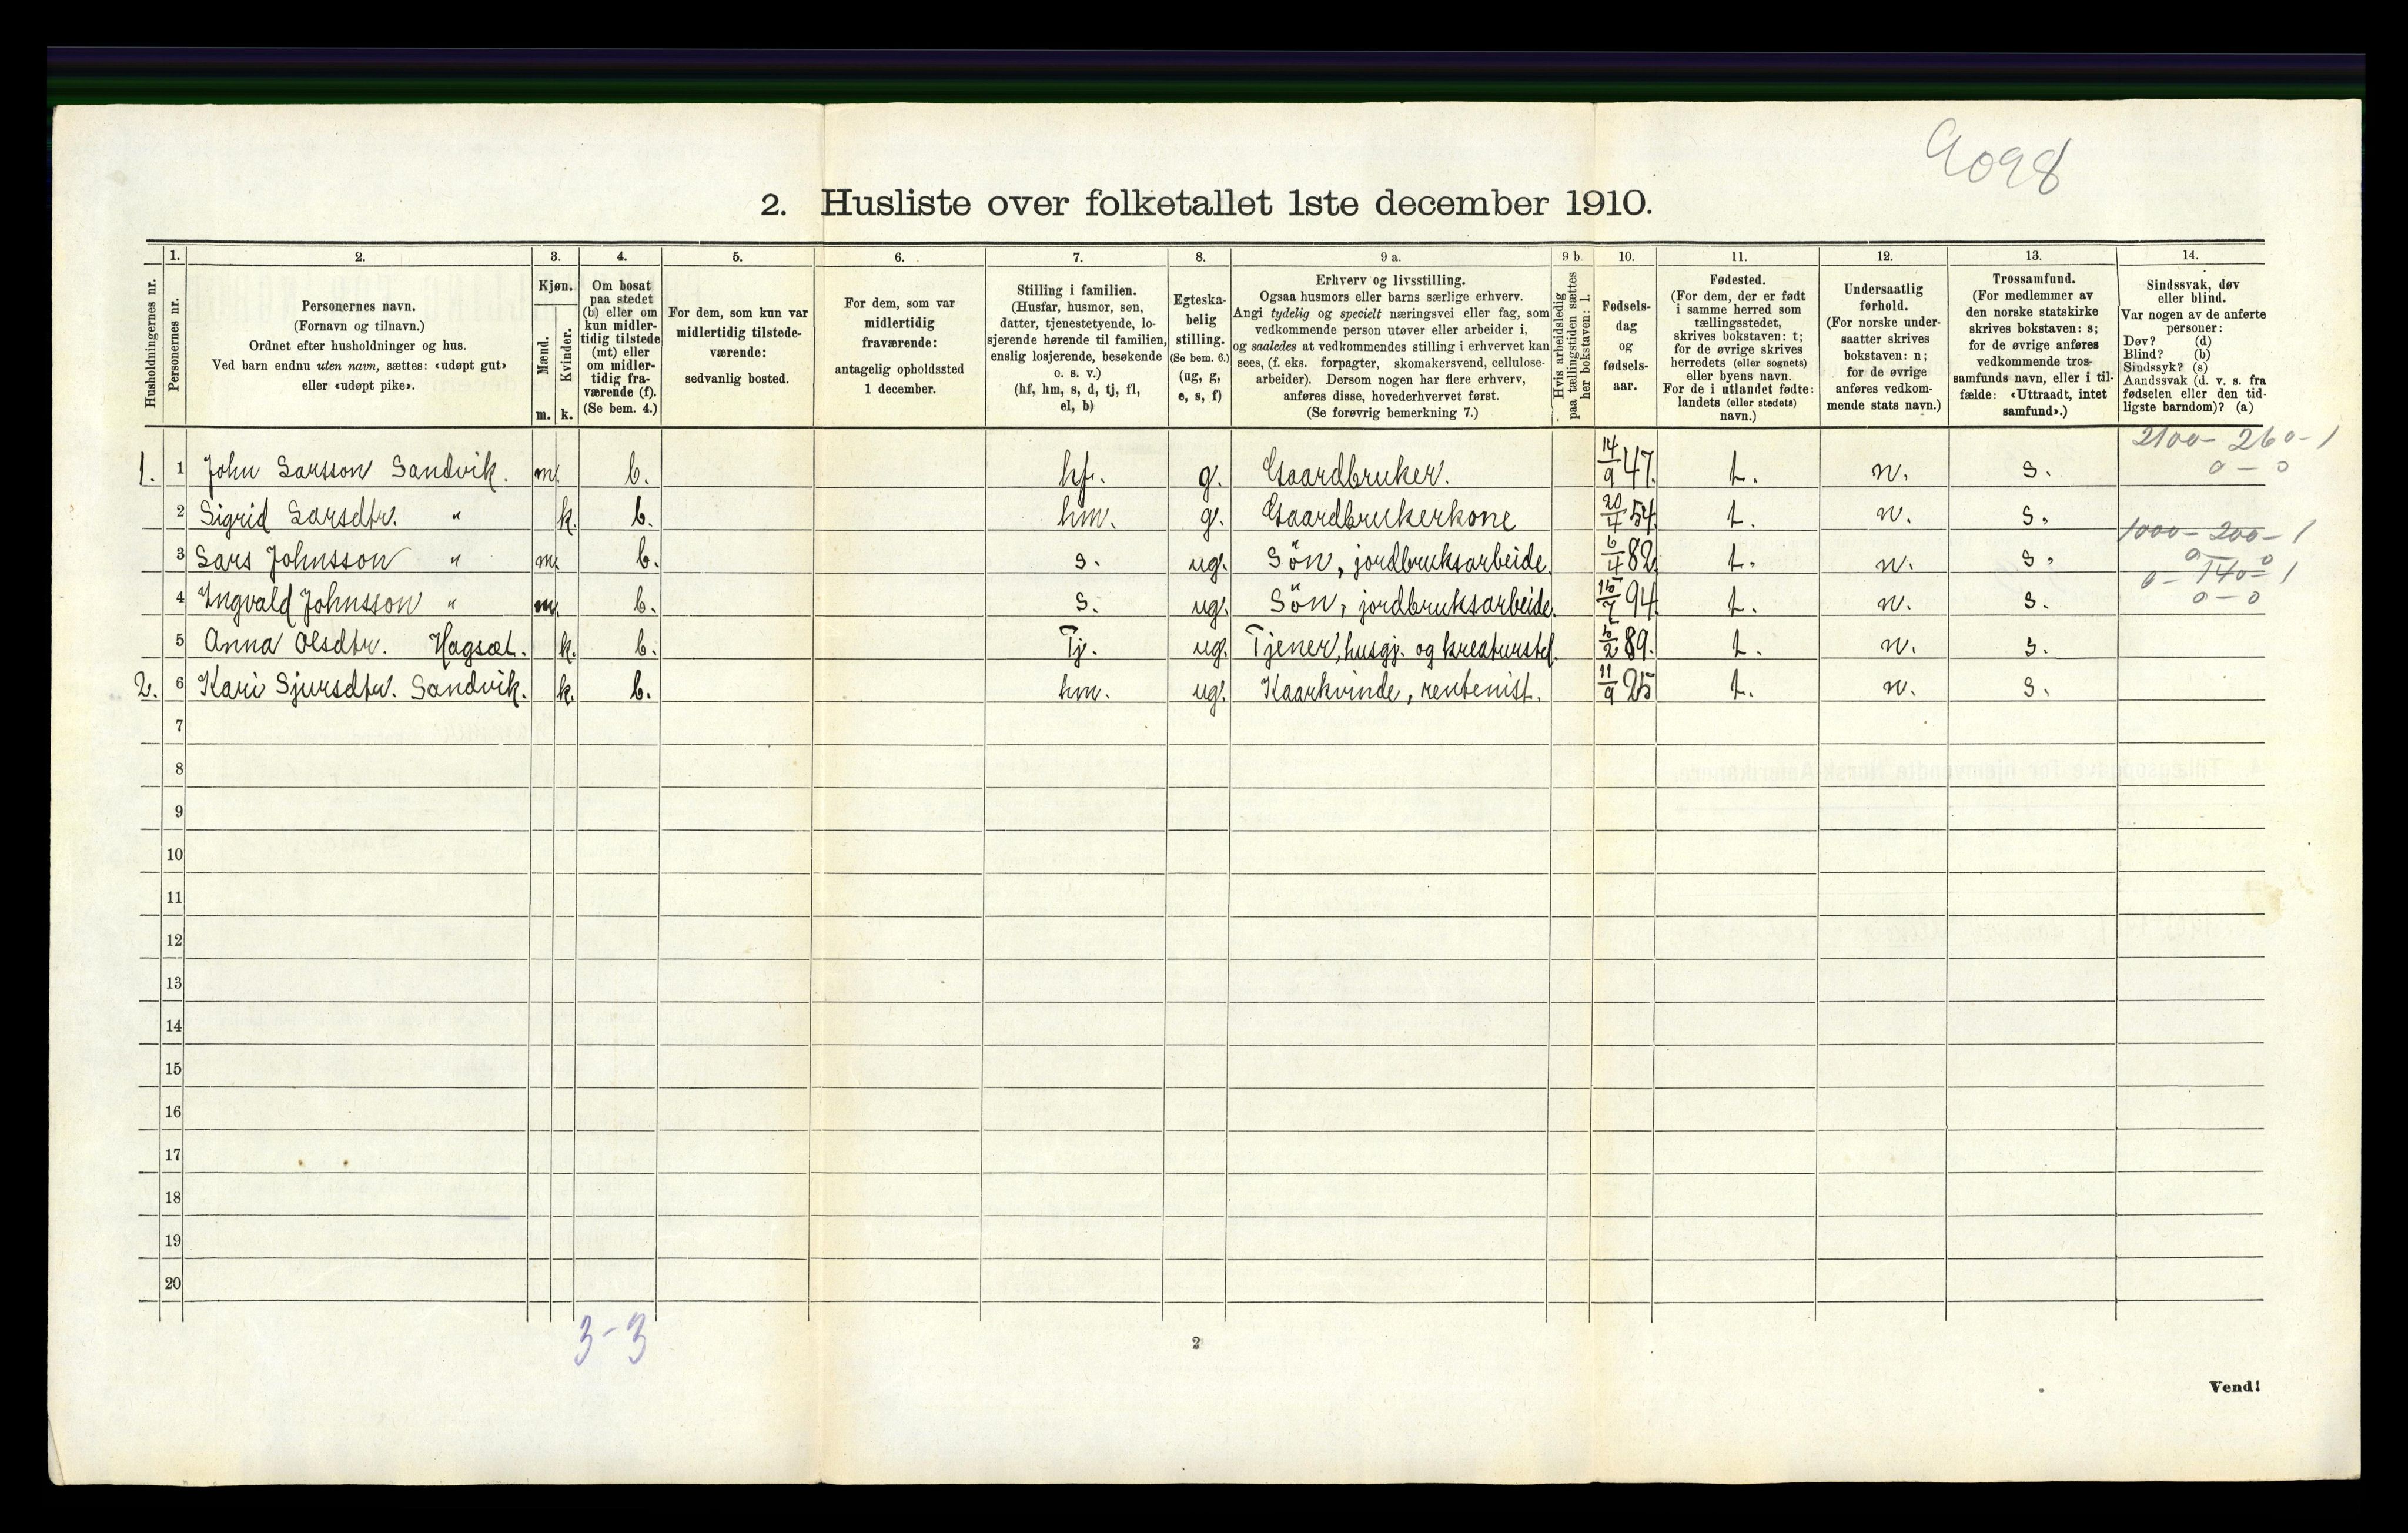 9098
2. Husliste over folketallet 1ste december 1910.
Husholdningernes nr.
1.
Personernes nr.
2.
Personernes navn.
(Fornavn og tilnavn.)
Ordnet efter husholdninger og hus.
Ved barn endnu uten navn, sættes: «udøpt gut»
eller «udøpt pike».
3.
Kjøn.
Mænd.
m.
Kvinder.
k.
4.
Om bosat
paa stedet
(b) eller om
kun midler-
tidig tilstede
(mt) eller
om midler-
tidig fra-
værende (f).
(Se bem. 4.)
5.
For dem, som kun var
midlertidig tilstede-
værende:
sedvanlig bosted.
6.
For dem, som var
midlertidig
fraværende:
antagelig opholdssted
1 december.
7.
Stilling i familien.
(Husfar, husmor, søn,
datter, tjenestetyende, lo-
sjerende hørende til familien,
enslig losjerende, besøkende
o. s. v.)
(hf, hm, s, d, tj, fl,
el, b)
8.
Egteska-
belig
stilling.
(Se bem. 6.)
(ug, g,
e, s, f)
9 a.
Erhverv og livsstilling.
Ogsaa husmors eller barns særlige erhverv.
Angi tydelig og specielt næringsvei eller fag, som
vedkommende person utøver eller arbeider i,
og saaledes at vedkommendes stilling i erhvervet kan
sees, (f. eks. forpagter, skomakersvend, cellulose-
arbeider). Dersom nogen har flere erhverv,
anføres disse, hovederhvervet først.
(Se forøvrig bemerkning 7.)
9 b.
Hvis arbeidsledig
paa tællingstiden sættes
her bokstaven: l.
10.
Fødsels-
dag
og
fødsels-
aar.
11.
Fødested.
(For dem, der er født
i samme herred som
tællingsstedet,
skrives bokstaven: t;
for de øvrige skrives
herredets (eller sognets)
eller byens navn.
For de i utlandet fødte:
landets (eller stedets)
navn.)
12.
Undersaatlig
forhold.
(For norske under-
saatter skrives
bokstaven: n;
for de øvrige
anføres vedkom-
mende stats navn.)
13.
Trossamfund.
(For medlemmer av
den norske statskirke
skrives bokstaven: s;
for de øvrige anføres
vedkommende tros-
samfunds navn, eller i til-
fælde: «Uttraadt, intet
samfund».)
14.
Sindssvak, døv
eller blind.
Var nogen av de anførte
personer:
Døv? (d)
Blind? (b)
Sindssyk? (s)
Aandssvak (d. v. s. fra
fødselen eller den tid-
ligste barndom)? (a)
2100 - 260 - 1
0 - 0
1. 1 John Larsson Sandvik. m. b. hf. g. Gaardbruker. 14/9 47. t. n. s.
2 Sigrid Larsdtr. " k. b. hm. g. Gaardbrukerkone 20/4 54. t. n. s.
1000 - 200 - 1
0 0
3 Lars Johnsson " m. b. s. ug. Søn, jordbruksarbeide. 6/4 82. t. n. s.
0 - 140 - 1
0 - 0
4 Ingvald Johnsson " m. b. s. ug. Søn, jordbruksarbeide. 15/7 94. t. n. s.
5 Anna Olsdtr. Hagsæt. k. b. Tj. ug. Tjener, husgj. og kreaturstel. 5/2 89. t. n. s.
2. 6 Kari Sjursdtr. Sandvik. k. b. hm. ug. Kaarkvinde, rentenist. 11/9 25 t. n. s.
7
8
9
10
11
12
13
14
15
16
17
18
19
20
3-3
2
Vend!